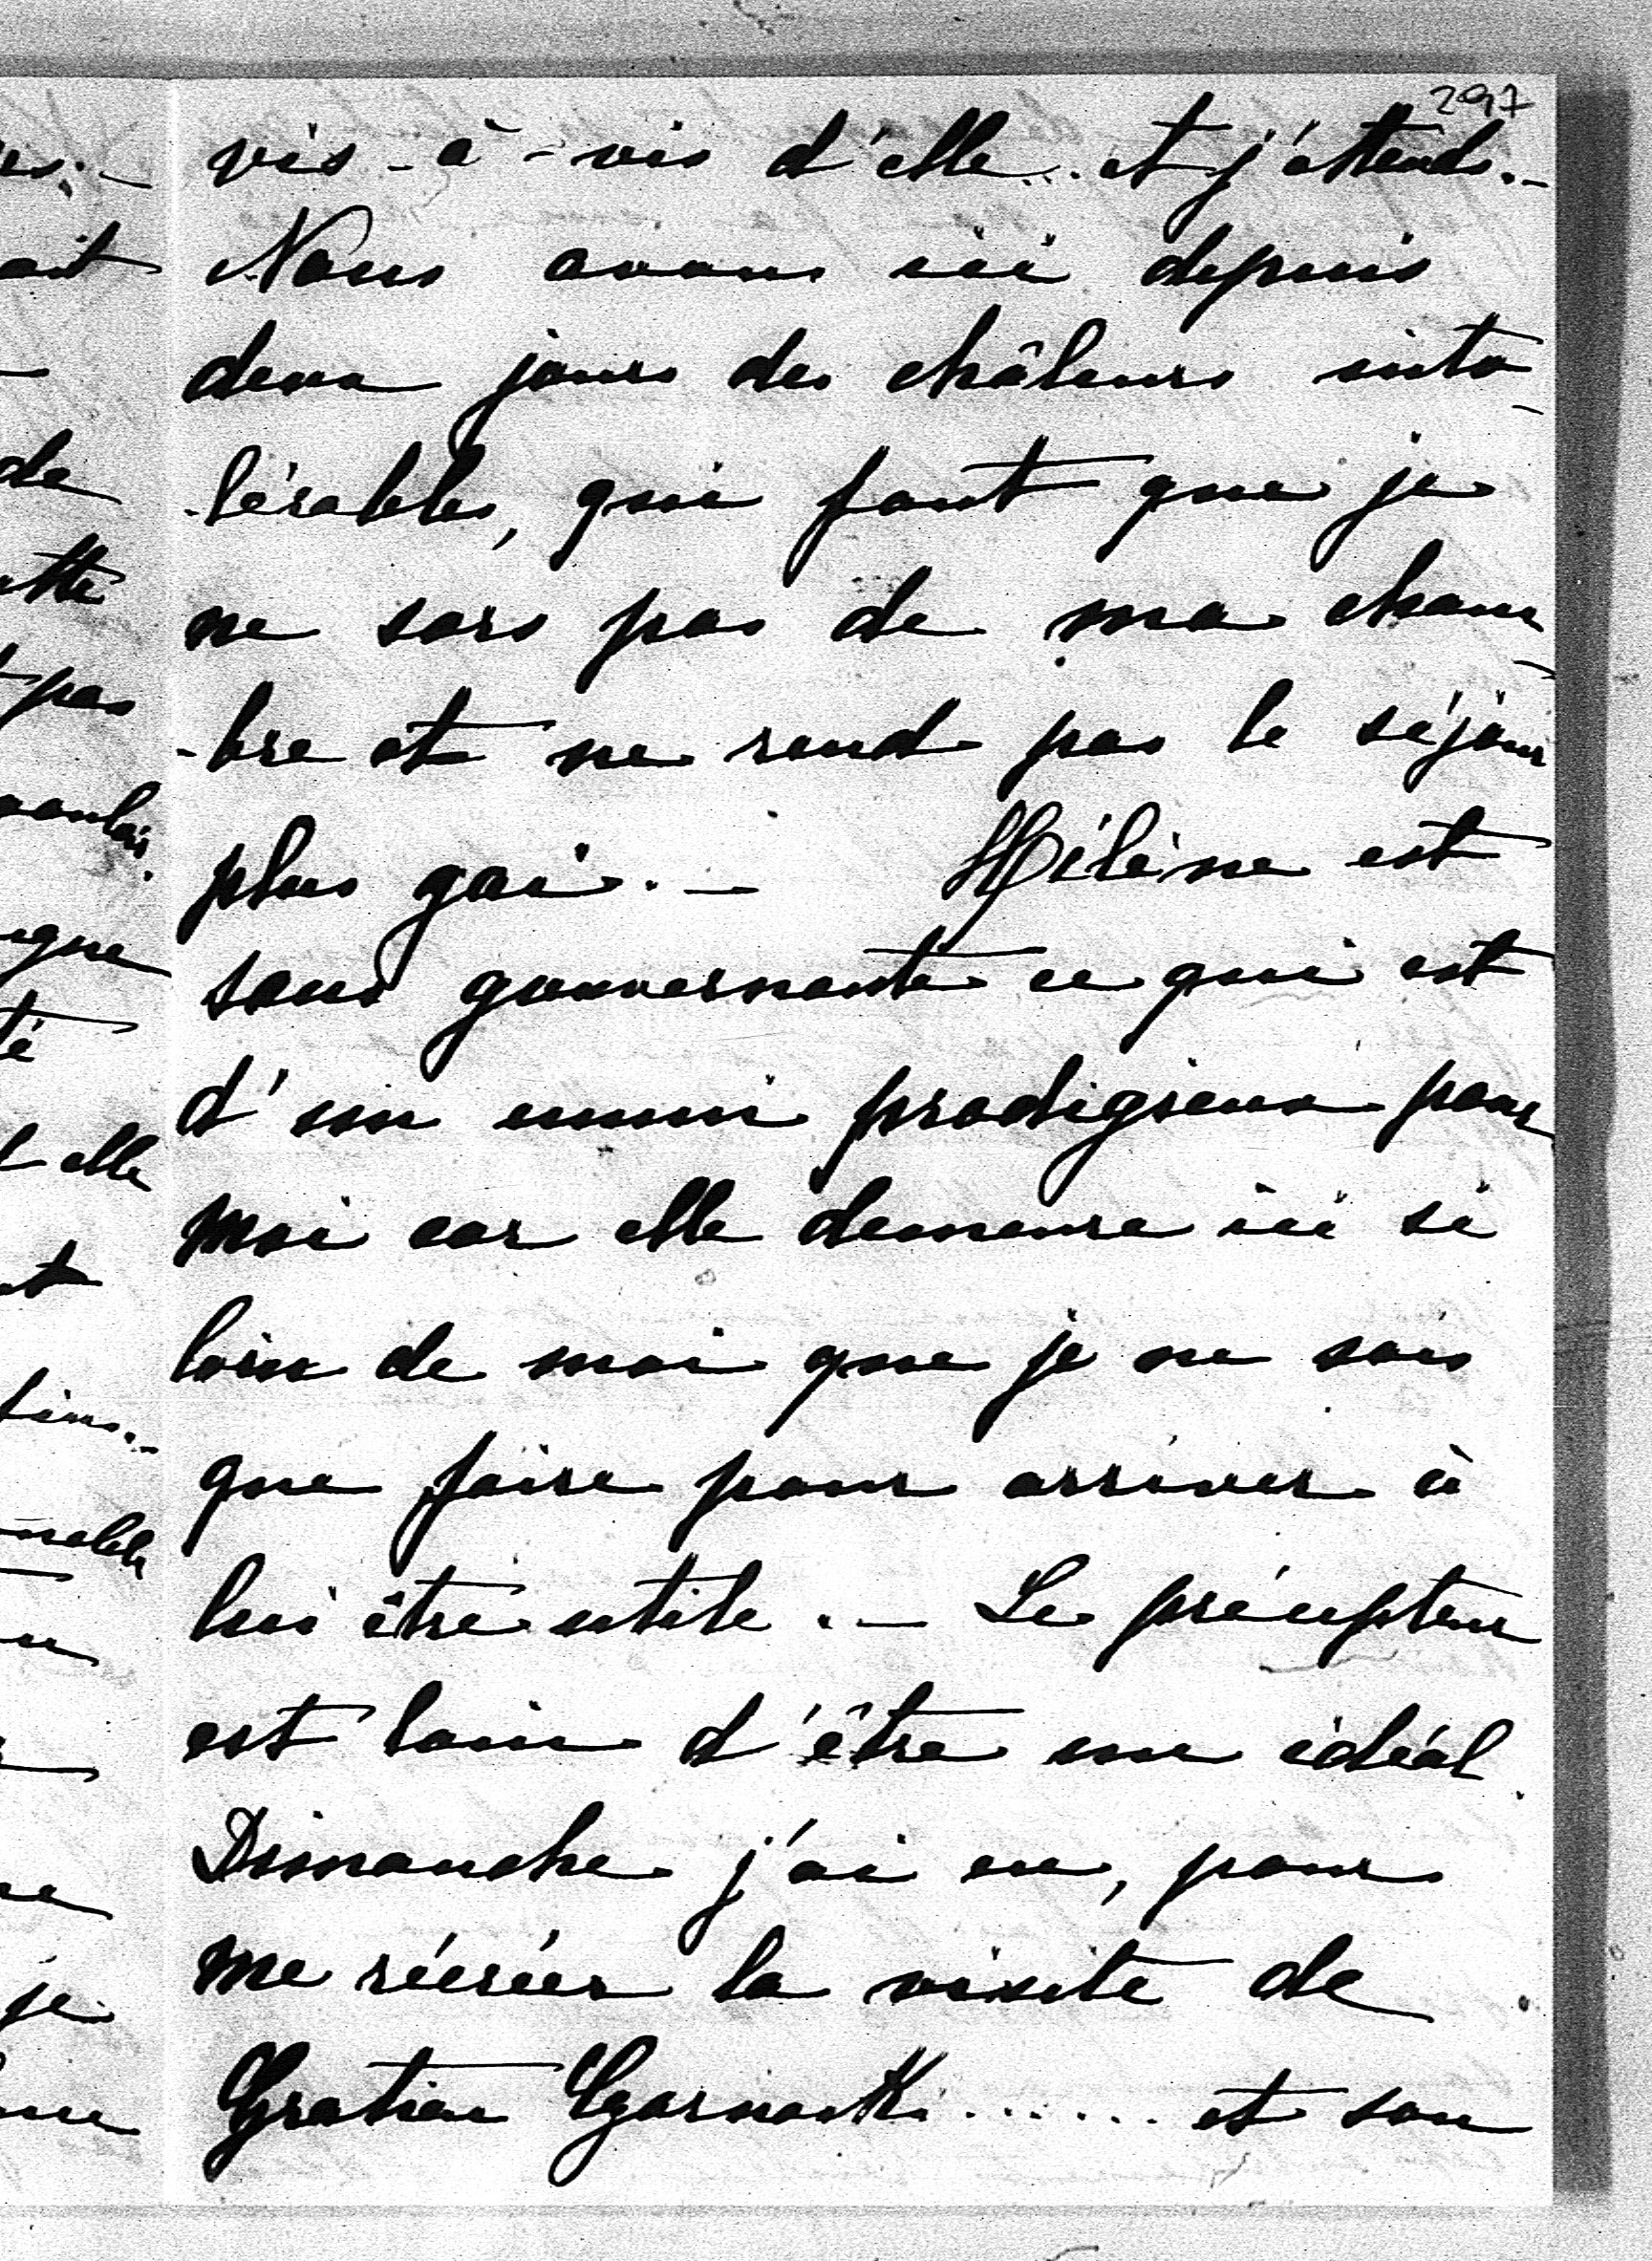 297
vis-à-vis d'elle... et j'attends.-
Nous avons ici depuis
deux jours des châleurs into-
-lérables, qui font que je
ne sors pas de ma cham-
-bre et ne rend pas le séjour
plus gai.- Hélène est
sans gouvernante ce qui est
d'un ennui prodigieux pour
moi car elle demeure ici si
loin de moi que je ne sais
que faire pour arriver à
lui être utile.- Le précepteur
est loin d'être un idéal.
Dimanche j'ai eu, pour
me récréer la visite de
Gratien ...... et son